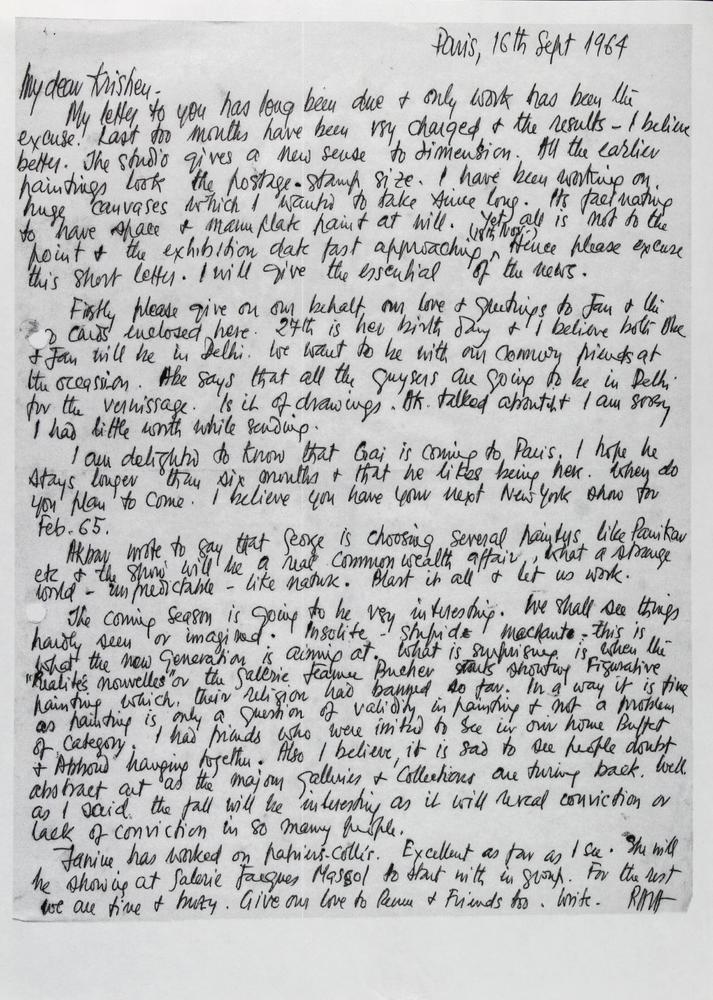 Paris, 16th Sept 1964
My dear Krishen-
My letter to you has long been due & only work has been the
excuse! Last two months have been very charged & the results - I believe
better. The studio gives a new sense to dimension. All the earlier
paintings look the postage-stamp size. I have been working on
huge canvases which I wanted to take since long. Its fascinating
to have space & manuplate paint at will. Yet, all is not to the
(18th Nov.)
point & the exhibition date fast approaching, Hence please excuse
this short letter. I will give the essential of the news.
Firstly please give on our behalf our love & greetings to Jan & the
2 cards enclosed here. 27th is her birth day & I believe both Abe
& Jan will be in Delhi. We want to be with our common friends at
the occassion. Abe says that all the guysers are going to be in Delhi
for the vernissage. Is it of drawings. Ak. talked about it & I am sorry
I had little worth while sending.
I am delighted to know that Gai is coming to Paris. I hope he
stays longer than six months & that he likes being here. When do
you plan to come. I believe you have your next New York show for
Feb. 65.
Akbar wrote to say that George is choosing several painters, like Panikar
etc & the show will be a real Common wealth affair, what a strange
world - unpredictable - like nature. Blast it all & let us work.
The coming season is going to be very interesting. We shall see things
hardly seen or imagined. Insolite - stupide machante - this is
what the new Generation is aiming at. What is surprising is when the
"Realités nouvelles" or the Galerie Jeanne Bucher starts showing Figurative
painting which, their religion had banned so far. In a way it is fine
as painting is only a question of validity in painting & not a problem
of category. I had friends who were irrited to see in our home Buffet
& Abboud hanging together. Also I believe, it is sad to see people doubt
abstract art as the major galleries & Collections are turing back. Well.
as I said the fall will be interesting as it will reveal conviction or
lack of conviction in so many people.
Janine has worked on papiers-collés. Excellent as far as I see. She will
be showing at Galerie Jacques Massol to start with in group. For the rest
we are fine & busy. Give our love to Renu & Friends too. Write. RAZA